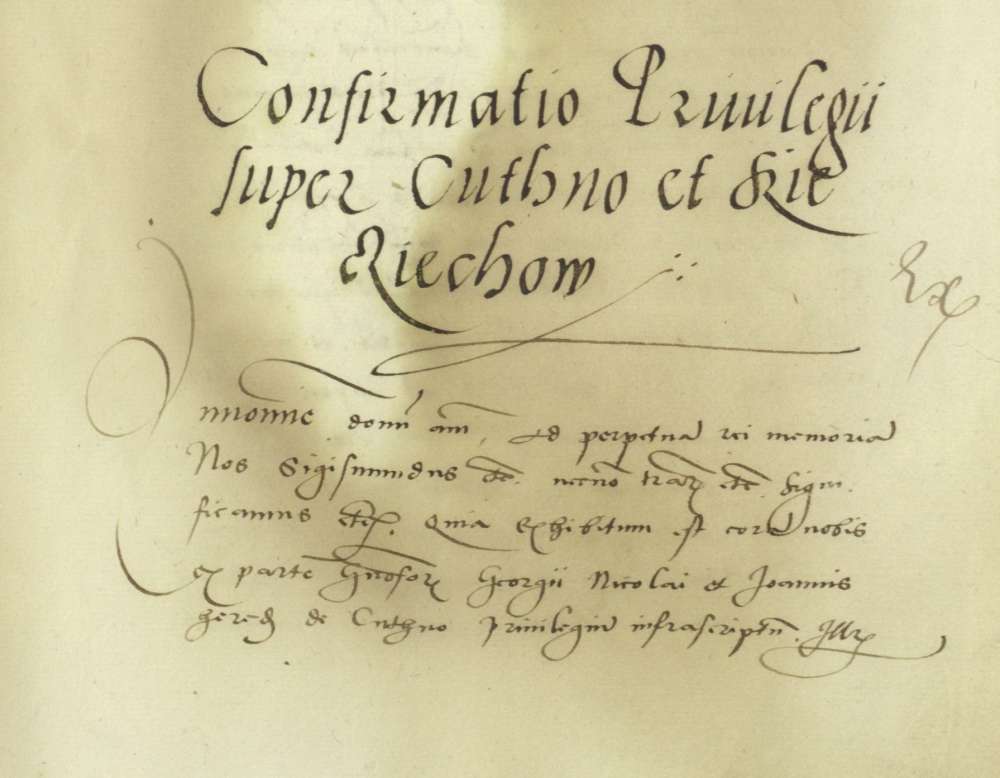 Confirmatio Priuilegii
super Cuthno et Sie
Riechow
Ex
In nomine domini am̄. Ad perpetuā rei memoriā
Nos Sigismundus etc̄. necnō trarꝝ etc̄. Signi
ficamus Quia Exhibitum est corā nobis
ex parte Gnosorꝝ Georgii Nicolai et Joannis
hered de Cuthno Priuilegiū infrascriptū.